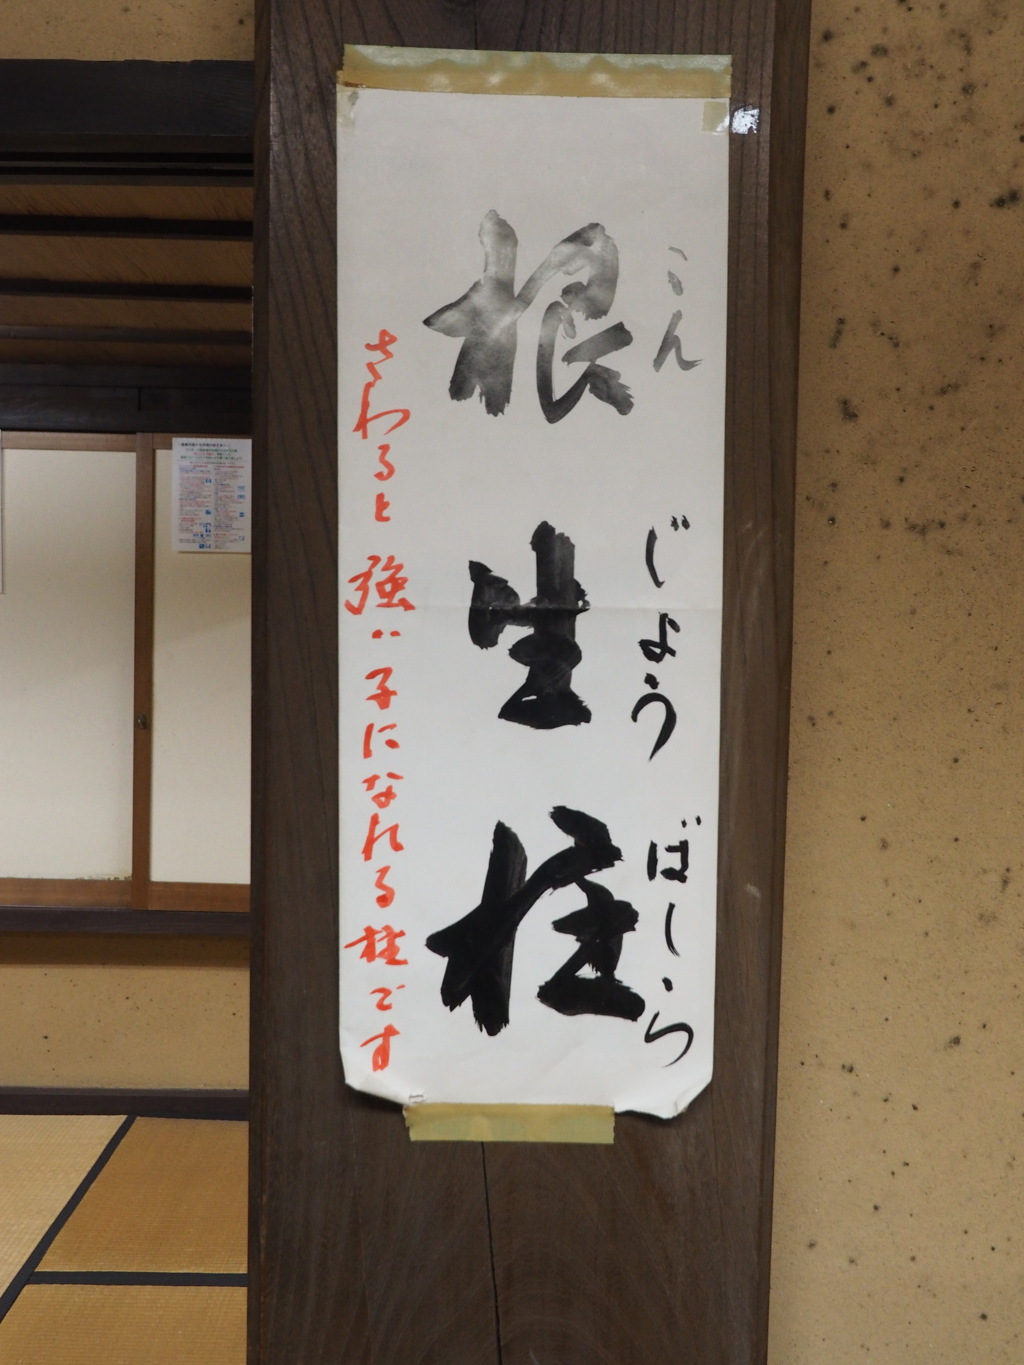 こんじょうばしら
根生柱
さわると強い子になれる柱です